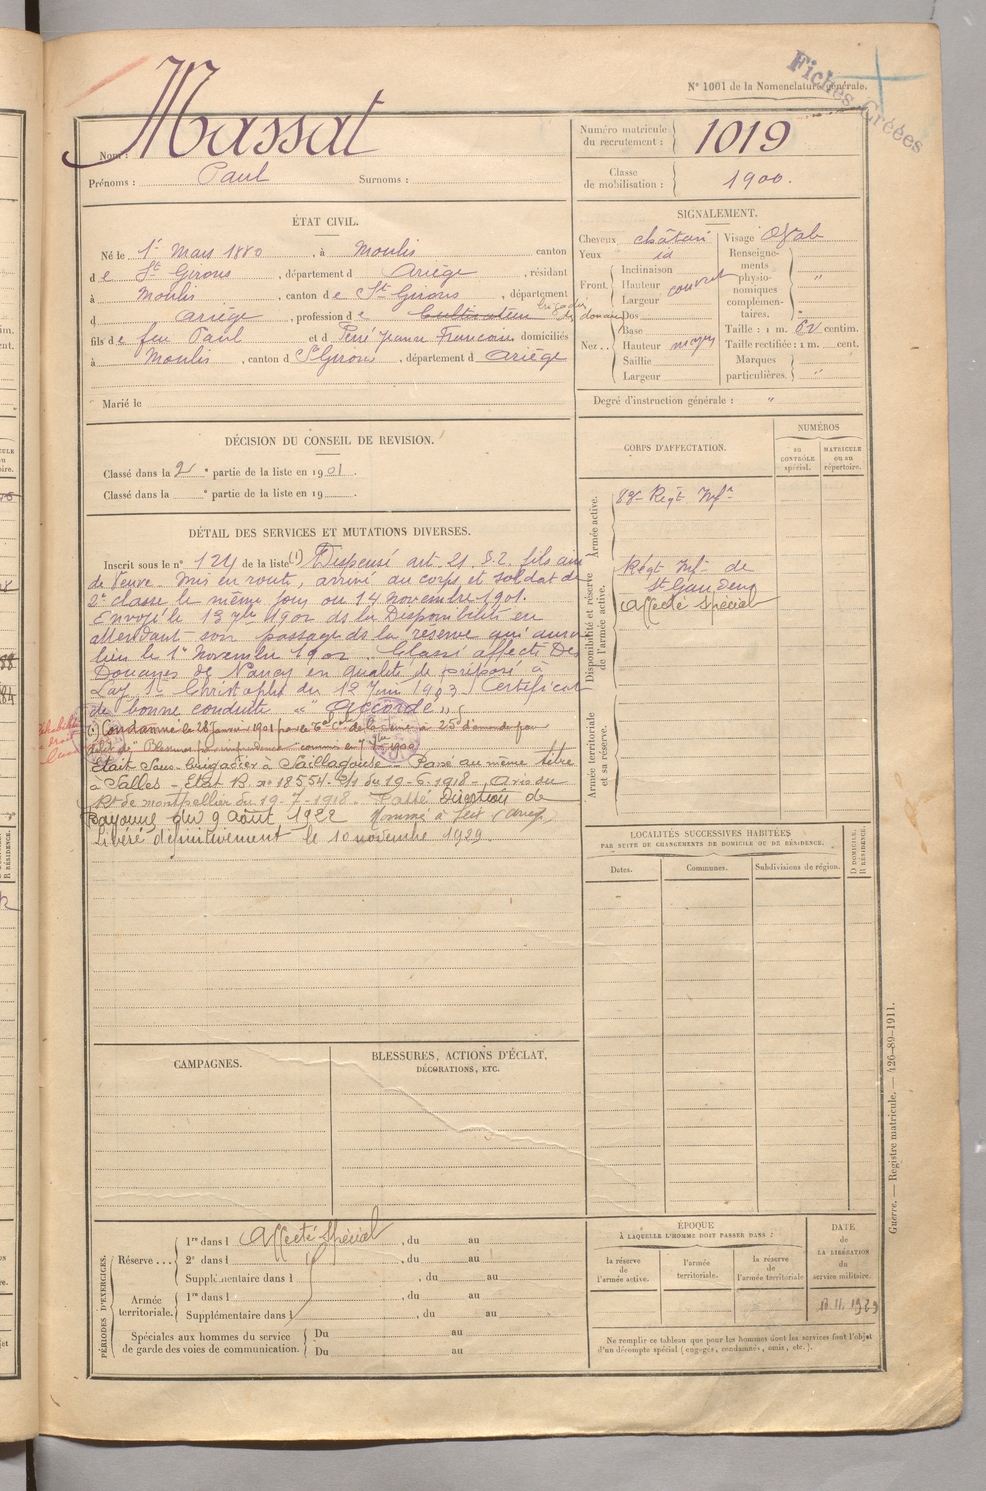 Fiches Créées
N° 1001 de la Nomenclature générale.
Nom : Massat
Prénoms : Paul Surnoms :
Numéro matricule du recrutement : 1019
Classe de mobilisation : 1900.
ÉTAT CIVIL.
Né le 1er Mars 1880, à Moulis canton
de St Girons, département d Ariège, résidant
à Moulis, canton de St Girons, département
d Ariège, profession de Cultivateur brigadier des douanes
fils de feu Paul et d Peré Jeanne Francoise domiciliés
à Moulis, canton d St Girons, département d Ariège
Marié le
SIGNALEMENT.
Cheveux châtain
Yeux id
Front. Inclinaison
Hauteur couvert
Largeur
Nez Dos
Base
Hauteur moyen
Saillie
Largeur
Visage Ovale
Renseignements physionomiques complémentaires. "
Taille : 1 m. centim.
Taille rectifiée : 1 m. cent.
Marques particulières. "
Degré d'instruction générale : "
DÉCISION DU CONSEIL DE REVISION.
Classé dans la 2e partie de la liste en 1901.
Classé dans la e partie de la liste en 19
CORPS D'AFFECTATION.
NUMÉROS
au CONTRÔLE spécial.
MATRICULE ou au répertoire.
Armée active.
Régt Infie
Disponibilité et réserve de l'armée active.
Régt Infie de
St Gaudens
Affecté spécial
Armée territoriale et sa réserve.
DÉTAIL DES SERVICES ET MUTATIONS DIVERSES.
Inscrit sous le n° 124 de la liste (1) Dispensé art. 21 § 2. fils ainé
de Veuve. Mis en route, arrivé au corps et soldat de
2e classe le même jour ou 14 novembre 1901.
Envoyé le 13 7bre 1902 ds la Disponibilité en
attendant son passage ds la réserve qui aura
lieu le 1er Novembre 1902. Classé affecté Des
Douanes de Nancy en qualité de préposé à
Laf. St Christophe du 12 Juin 1903. Certificat
de bonne conduite "" Accordé ""
(1) Condamné le 28 Janvier 1901 par le de la Seine à 25f d'amende pour
délit de "Blessures par imprudence" commis en 7bre 1900
Etait Sous-brigadier à Saillagouse - Passé au même titre
à Salles - Etat R. n° 18554 du 19-6-1918 - Avis du
de Montpellier du 19-7-1918. Direction de
Bayonne du 9 Août 1922 Nommé à (Ariège)
Libéré définitivement le 10 novembre 1929.
LOCALITÉS SUCCESSIVES HABITÉES
PAR SUITE DE CHANGEMENTS DE DOMICILE OU DE RÉSIDENCE.
Dates. Communes. Subdivisions de région.
D DOMICILE. R RÉSIDENCE.
CAMPAGNES.
BLESSURES, ACTIONS D'ÉCLAT,
DÉCORATIONS, ETC.
PÉRIODES D'EXERCICES.
Réserve... 1re dans l Affecté Spécial, du au
2e dans l , du au
Supplémentaire dans l , du au
Armée territoriale. 1re dans l , du au
Supplémentaire dans l , du au
Spéciales aux hommes du service de garde des voies de communication. Du au
Du au
ÉPOQUE
À LAQUELLE L'HOMME DOIT PASSER DANS :
la réserve de l'armée active.
l'armée territoriale.
la réserve de l'armée territoriale
DATE de LA LIBÉRATION du service militaire.
10.11.1929
Ne remplir ce tableau que pour les hommes dont les services font l'objet
d'un décompte spécial (engagés, condamnés, omis, etc.).
Guerre. — Registre matricule. — 426-89-1911.